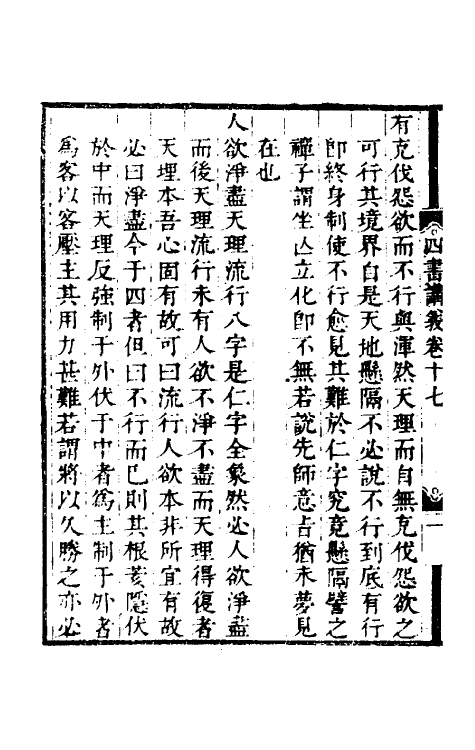 有克伐怨欲而不行與渾然天理而自無克伐怨欲之
可行其境界自是天地懸隔不必說不行到底有行
卽終身制使不行愈見其難於仁字究竟懸隔譬之
禪子謂坐亡立化卽不無若說先師意占猶未夢見
在也
人欲淨盡天理流行八字是仁字全象然必人欲淨盡
而後天理流行未有人欲不淨不盡而天理得復者
天理本吾心固有故可曰流行人欲本非所宜有故
必曰淨盡今于四者但曰不行而已則其根荄隱伏
於中而天理反強制于外伏于中者爲主制于外者
爲客以客壓主其用力甚難若謂將以久勝之亦必
四書講義卷十七
二